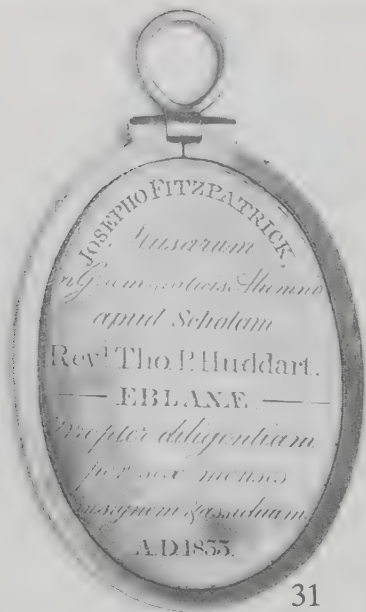 JOSEPHO FITZPATRICK,
Musarum
in Grammaticis Alumno
apud Scholam
Revd. Tho. P. Huddart.
— EBLANÆ —
Propter diligentiam
per sex menses
insignem & assiduam
A.D. 1833.
31